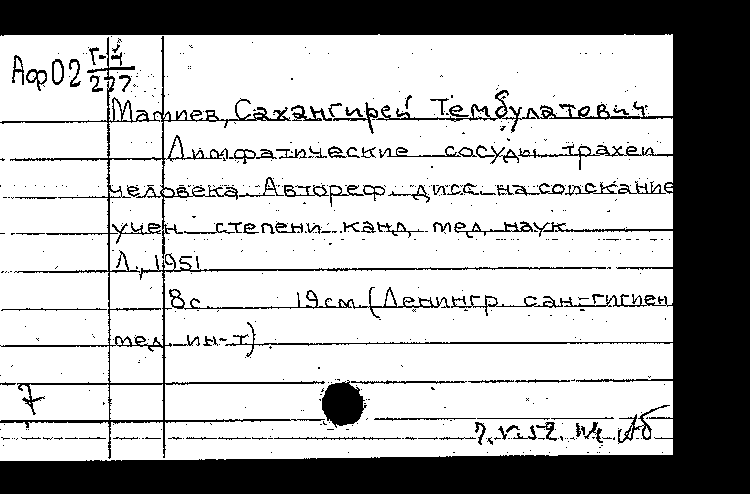 Аф02 Г-4
277
Матиев, Сахангирей Тембулатович
Лимфатические сосуды трахеи
человека. Автореф. дисс. на соискание
учен. степени канд. мед. наук.
Л., 1951
8с. 19см. (Ленингр. сан-гигиен.
мед. ин-т)
7
7.V.52.